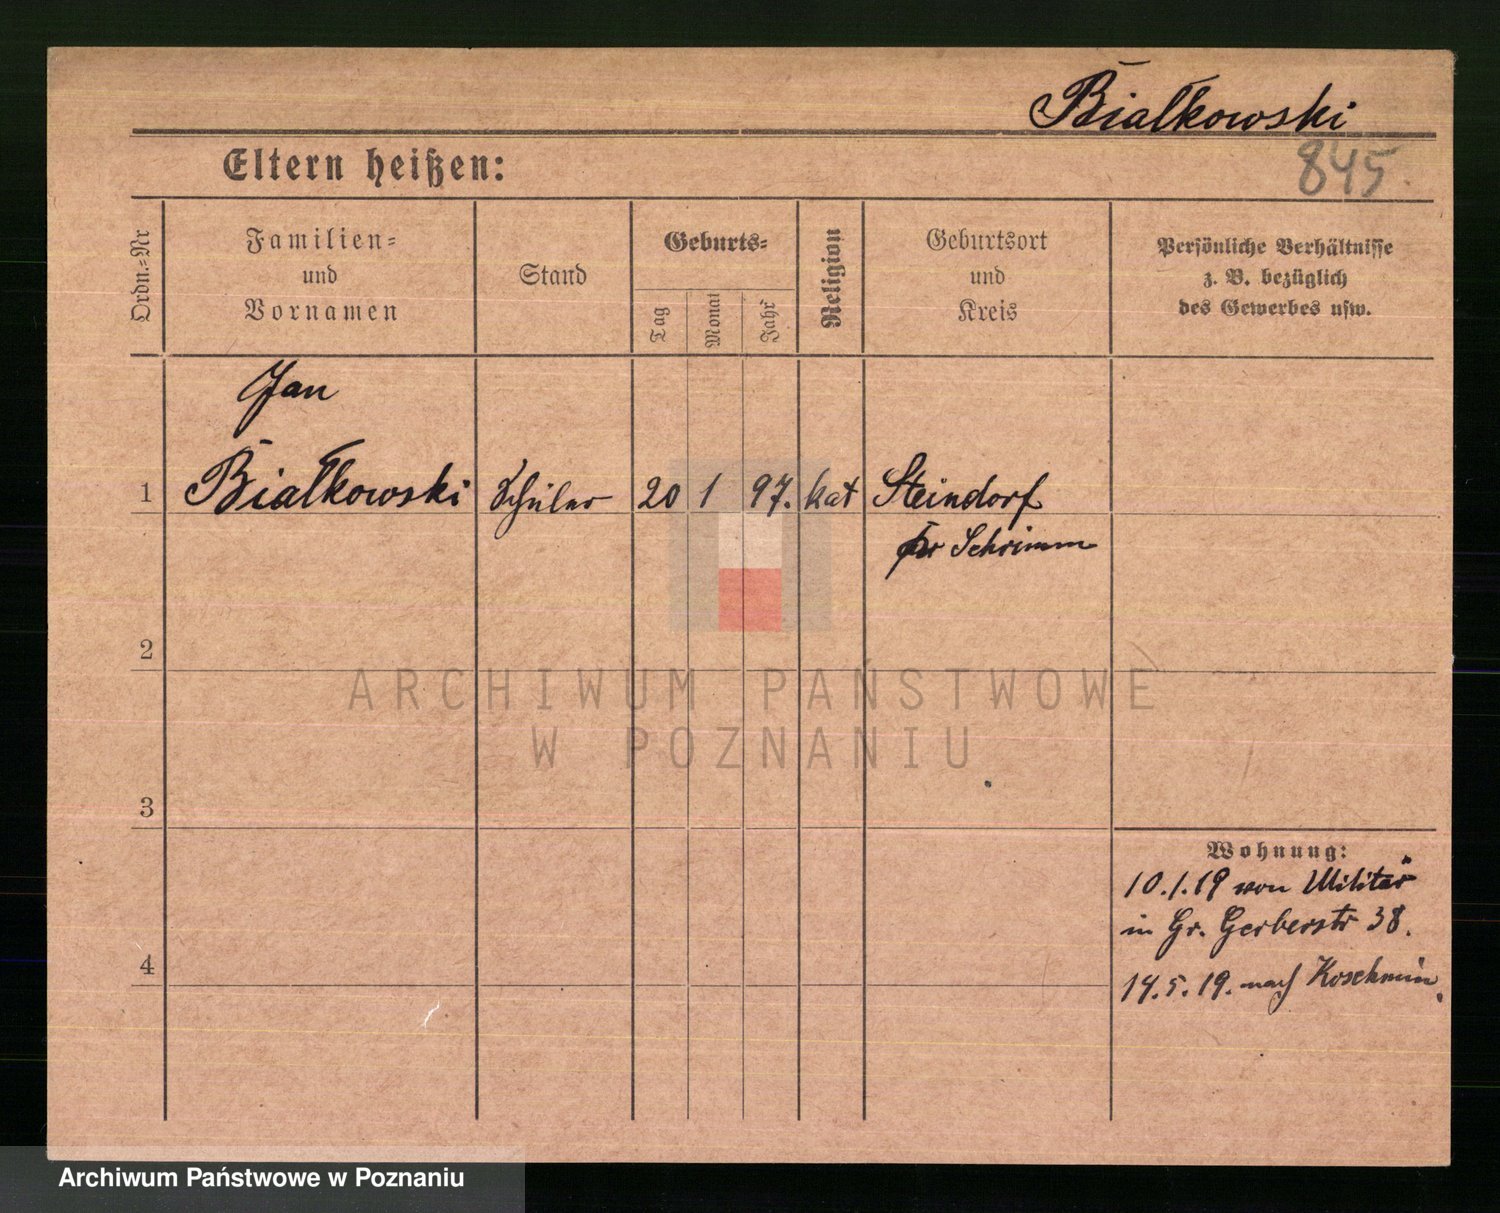 Białkowski
Eltern heißen:
845.
Ordn.=Nr
Familien=
und
Vornamen
Stand
Geburts=
Tag
Monat
Jahr
Religion
Geburtsort
und
Kreis
Persönliche Verhältnisse
z. B. bezüglich
des Gewerbes usw.
Jan
1 Białkowski Schüler 20 1 97. kat Steindorf
Kr Schrimm
2
ARCHIWUM PAŃSTWOWE
W POZNANIU
3
Wohnung:
10.1.19 von Militär
in Gr. Gerberstr 38.
4
14.5.19. nach Koschmin.
Archiwum Państwowe w Poznaniu